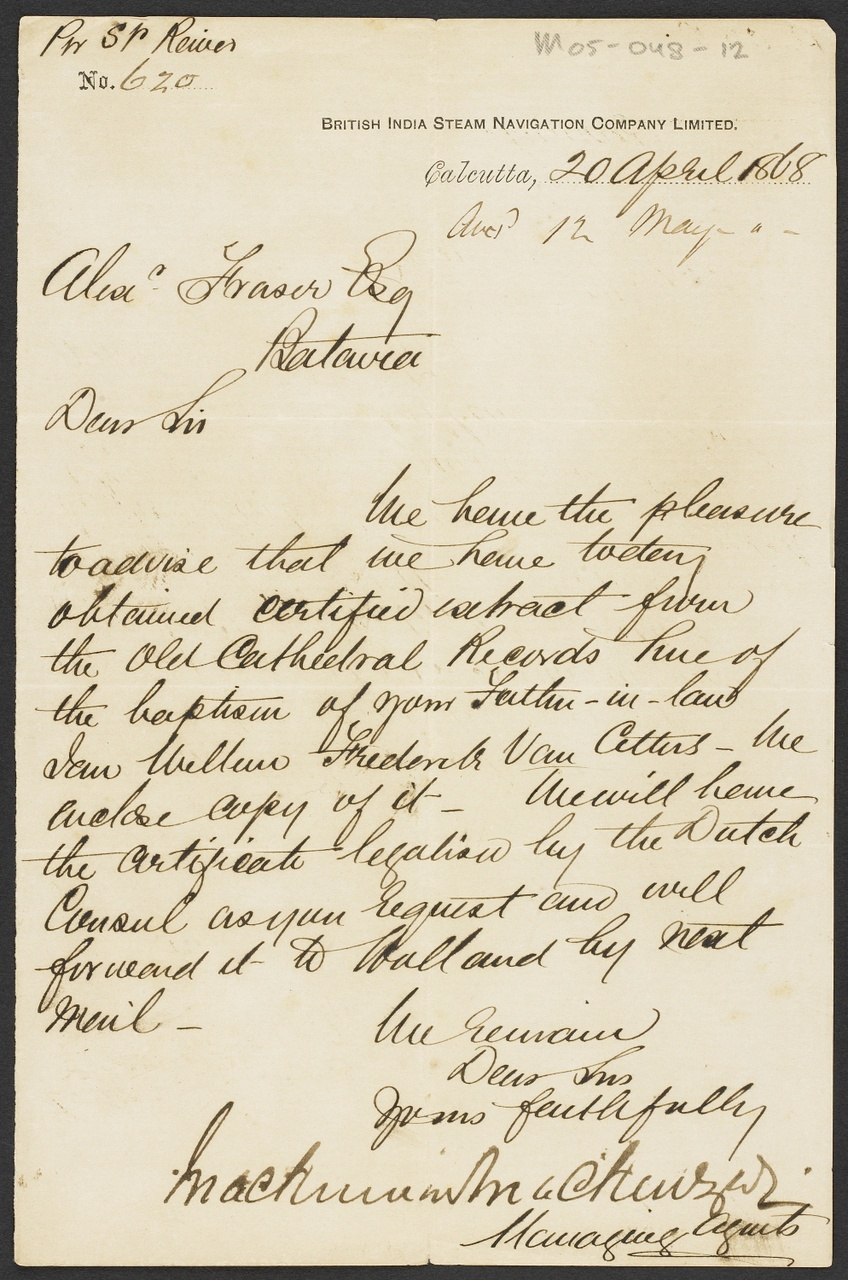 Per Sr Reiver
M05-048-12
No. 620
BRITISH INDIA STEAM NAVIGATION COMPANY LIMITED.
Calcutta, 20 April 1868
Ansd 12 May " -
Alexr Fraser Esq
Batavia
Dear Sir
We have the pleasure
to advise that we have today
obtained certified extract from
the Old Cathedral Records here of
the baptism of your Father-in-law
Jan Willem Frederik Van Citters - We
enclose copy of it - We will have
the certificate legalised by the Dutch
Consul as you request and will
forward it to Holland by next
Mail -
We remain
Dear Sir
Yours faithfully
Mackinnon Mackenzie & Co.
Managing Agents